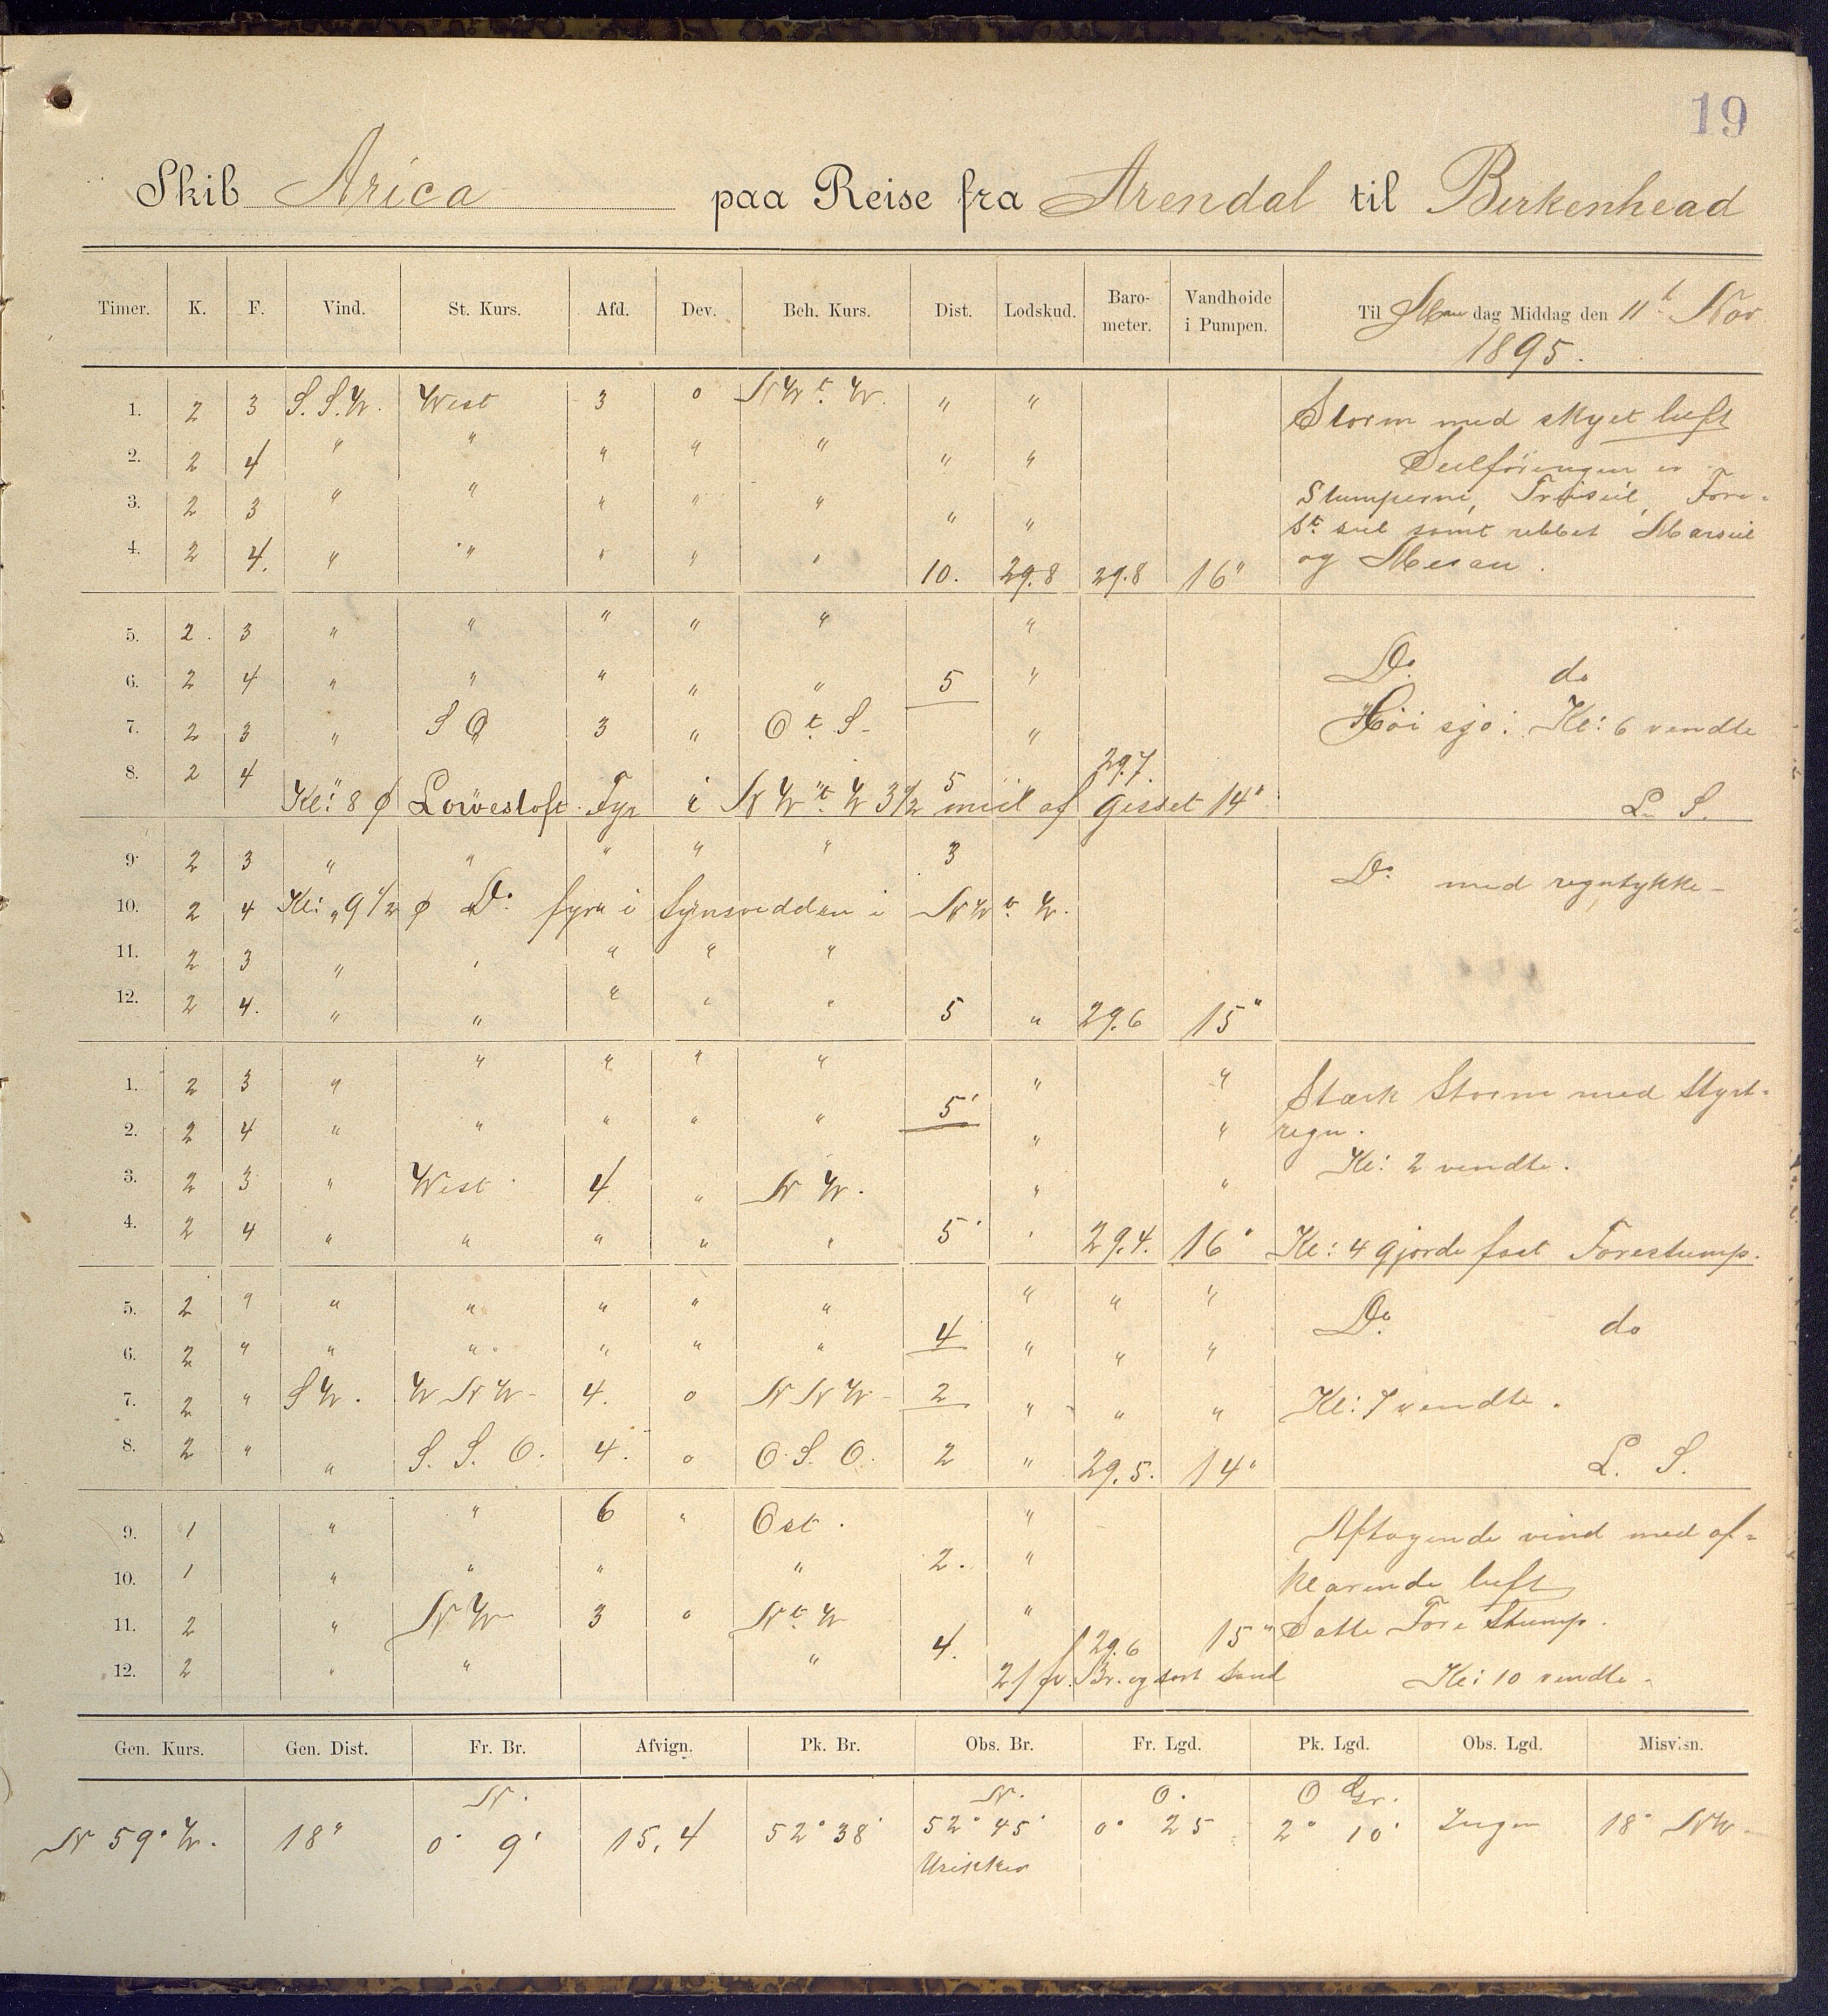 19
Skib Arica paa Reise fra Arendal til Birkenhead
Timer. K. F. Vind. St. Kurs. Afd. Dev. Beh. Kurs. Dist. Lodskud. Baro-meter. Vandhøide i Pumpen. Til Man dag Middag den 11t Nov
1895.
1. 2 3 S.S.W. West 3 0 NWt.W. " " Storm med skyet luft
2. 2 4 " " " " " " " Seilføringen er
3. 2 3 " " " " " " " Stumperne, Fore-
St. seil samt rebbet Marseil
4. 2 4. " " " " " 10. 29.8 29.8 16" og Mesan.
5. 2. 3 " " " " " "
6. 2 4 " " " " " 5 " Do. do
7. 2 3 " S O 3 " Ot S- " Høi sjø. Kl: 6 vendte
8. 2 4 " " " 5 29.7.
Kl: 8 ϕ Lowestoft Fyr i N Wt. W 3 1/2 miil af gisset 14" L. S.
9. 2 3 " " " " " 3 Do. med regntykke-
10. 2 4 Kl: 9 1/2 ϕ Do. fyr i Synsvidden i NWt. W.
11. 2 3 " " " " "
12. 2 4. " " " " " 5 " 29.6 15"
1. 2 3 " " " " " " " Stærk Storm med Styrt-
2. 2 4 " " " " " 5' " " regn.
Kl: 2 vendte.
3. 2 3 " West 4 " N W. " "
4. 2 4 " " " " " 5' " 29.4. 16" Kl: 4 gjorde fast Forestump.
5. 2 " " " " " " " " " Do. do
6. 2 " " " " " " 4 " " "
7. 2 " S W. W N W- 4. 0 N N W- 2 " " " Kl: 7 vendte.
8. 2 " " S. S. O. 4. 0 O. S. O. 2 " 29.5. 14" L. S.
9. 1 " " 6 " Ost. " Aftagende vind med op-
10. 1 " " " " 2. " klarende luft
11. 2 " N W 3 0 Nt. W " Satte Fore Stump.
12. 2 " " " 4. 29.6 15"
21 fv. Br. og sort Sand Kl: 10 vendte.
Gen. Kurs. Gen. Dist. Fr. Br. Afvign. Pk. Br. Obs. Br. Fr. Lgd. Pk. Lgd. Obs. Lgd. Misvisn.
N. N. O. O Gr.
N 59° W. 18" 0° 9' 15,4 52° 38' 52° 45' 0° 25 2° 10' Ingen 18° NW-